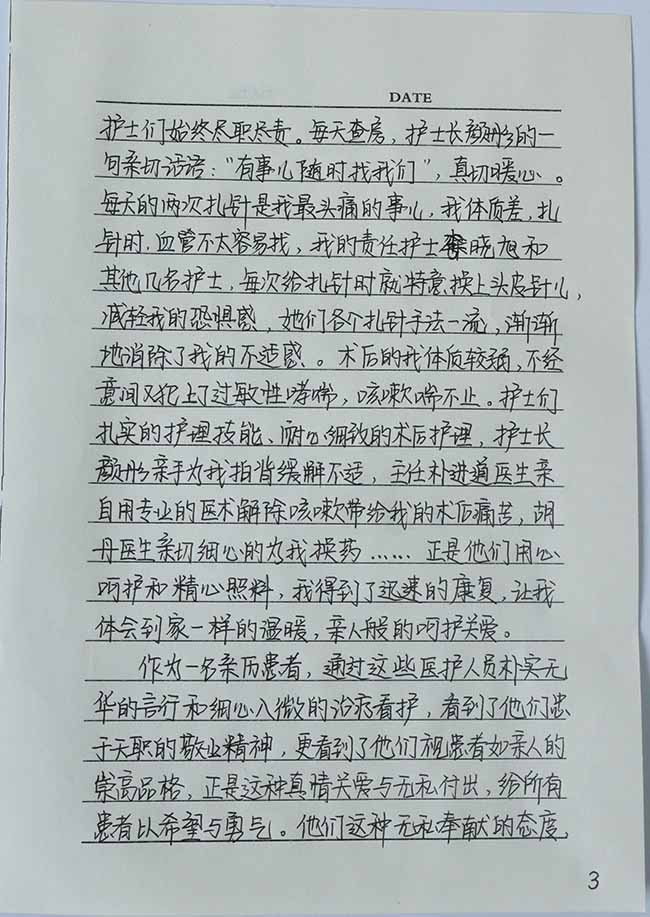 DATE
护士们始终尽职尽责。每天查房，护士长颜彤的一
句亲切话语："有事儿随时找我们"，真切暖心。
每天的两次扎针是我最头痛的事儿，我体质差，扎
针时，血管不太容易找，我的责任护士晓旭和
其他几名护士，每次给扎针时就特意换上头皮针儿，
减轻我的恐惧感，她们各个扎针手法一流，渐渐
地消除了我的不适感。术后的我体质较弱，不经
意间又犯上了过敏性哮喘，咳嗽喘不止。护士们
扎实的护理技能、耐心细致的术后护理，护士长
颜彤亲手为我拍背缓解不适，主任朴进道医生亲
自用专业的医术解除咳嗽带给我的术后痛苦，胡
丹医生亲切细心的为我换药……正是他们用心
呵护和精心照料，我得到了迅速的康复，让我
体会到家一样的温暖，亲人般的呵护关爱。
作为一名亲历患者，通过这些医护人员朴实无
华的言行和细心入微的治疗看护，看到了他们忠
于天职的敬业精神，更看到了他们视患者如亲人的
崇高品格，正是这种真情关爱与无私付出，给所有
患者以希望与勇气。他们这种无私奉献的态度，
3